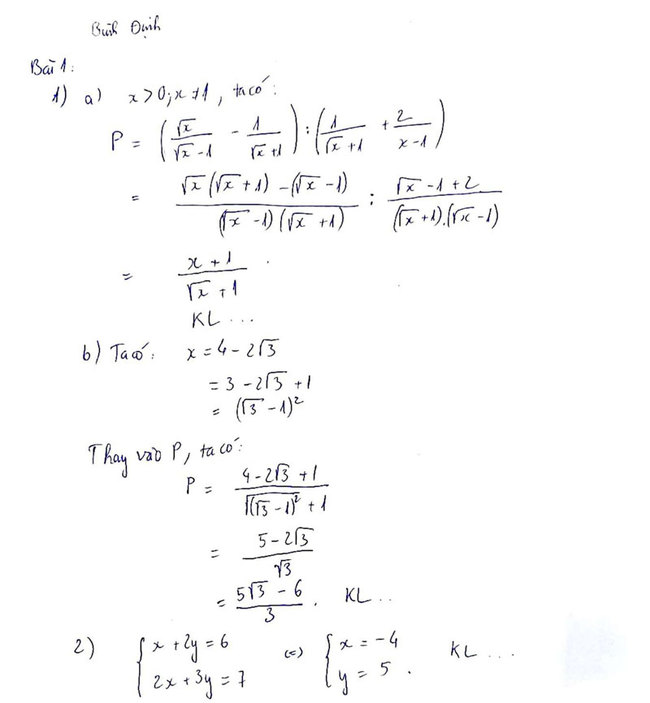 Bình Định
Bài 1:
1) a) x > 0; x ≠ 1, ta có:
P = (√x/(√x - 1) - 1/(√x + 1)) : (1/(√x + 1) + 2/(x - 1))
= (√x(√x + 1) - (√x - 1))/((√x - 1)(√x + 1)) : (√x - 1 + 2)/((√x + 1).(√x - 1))
= (x + 1)/(√x + 1) .
KL ...
b) Ta có: x = 4 - 2√3
= 3 - 2√3 + 1
= (√3 - 1)²
Thay vào P, ta có:
P = (4 - 2√3 + 1)/(√((√3 - 1)²) + 1)
= (5 - 2√3)/√3
= (5√3 - 6)/3 . KL ...
2) { x + 2y = 6 (=) { x = -4 KL ...
{ 2x + 3y = 7 { y = 5 .